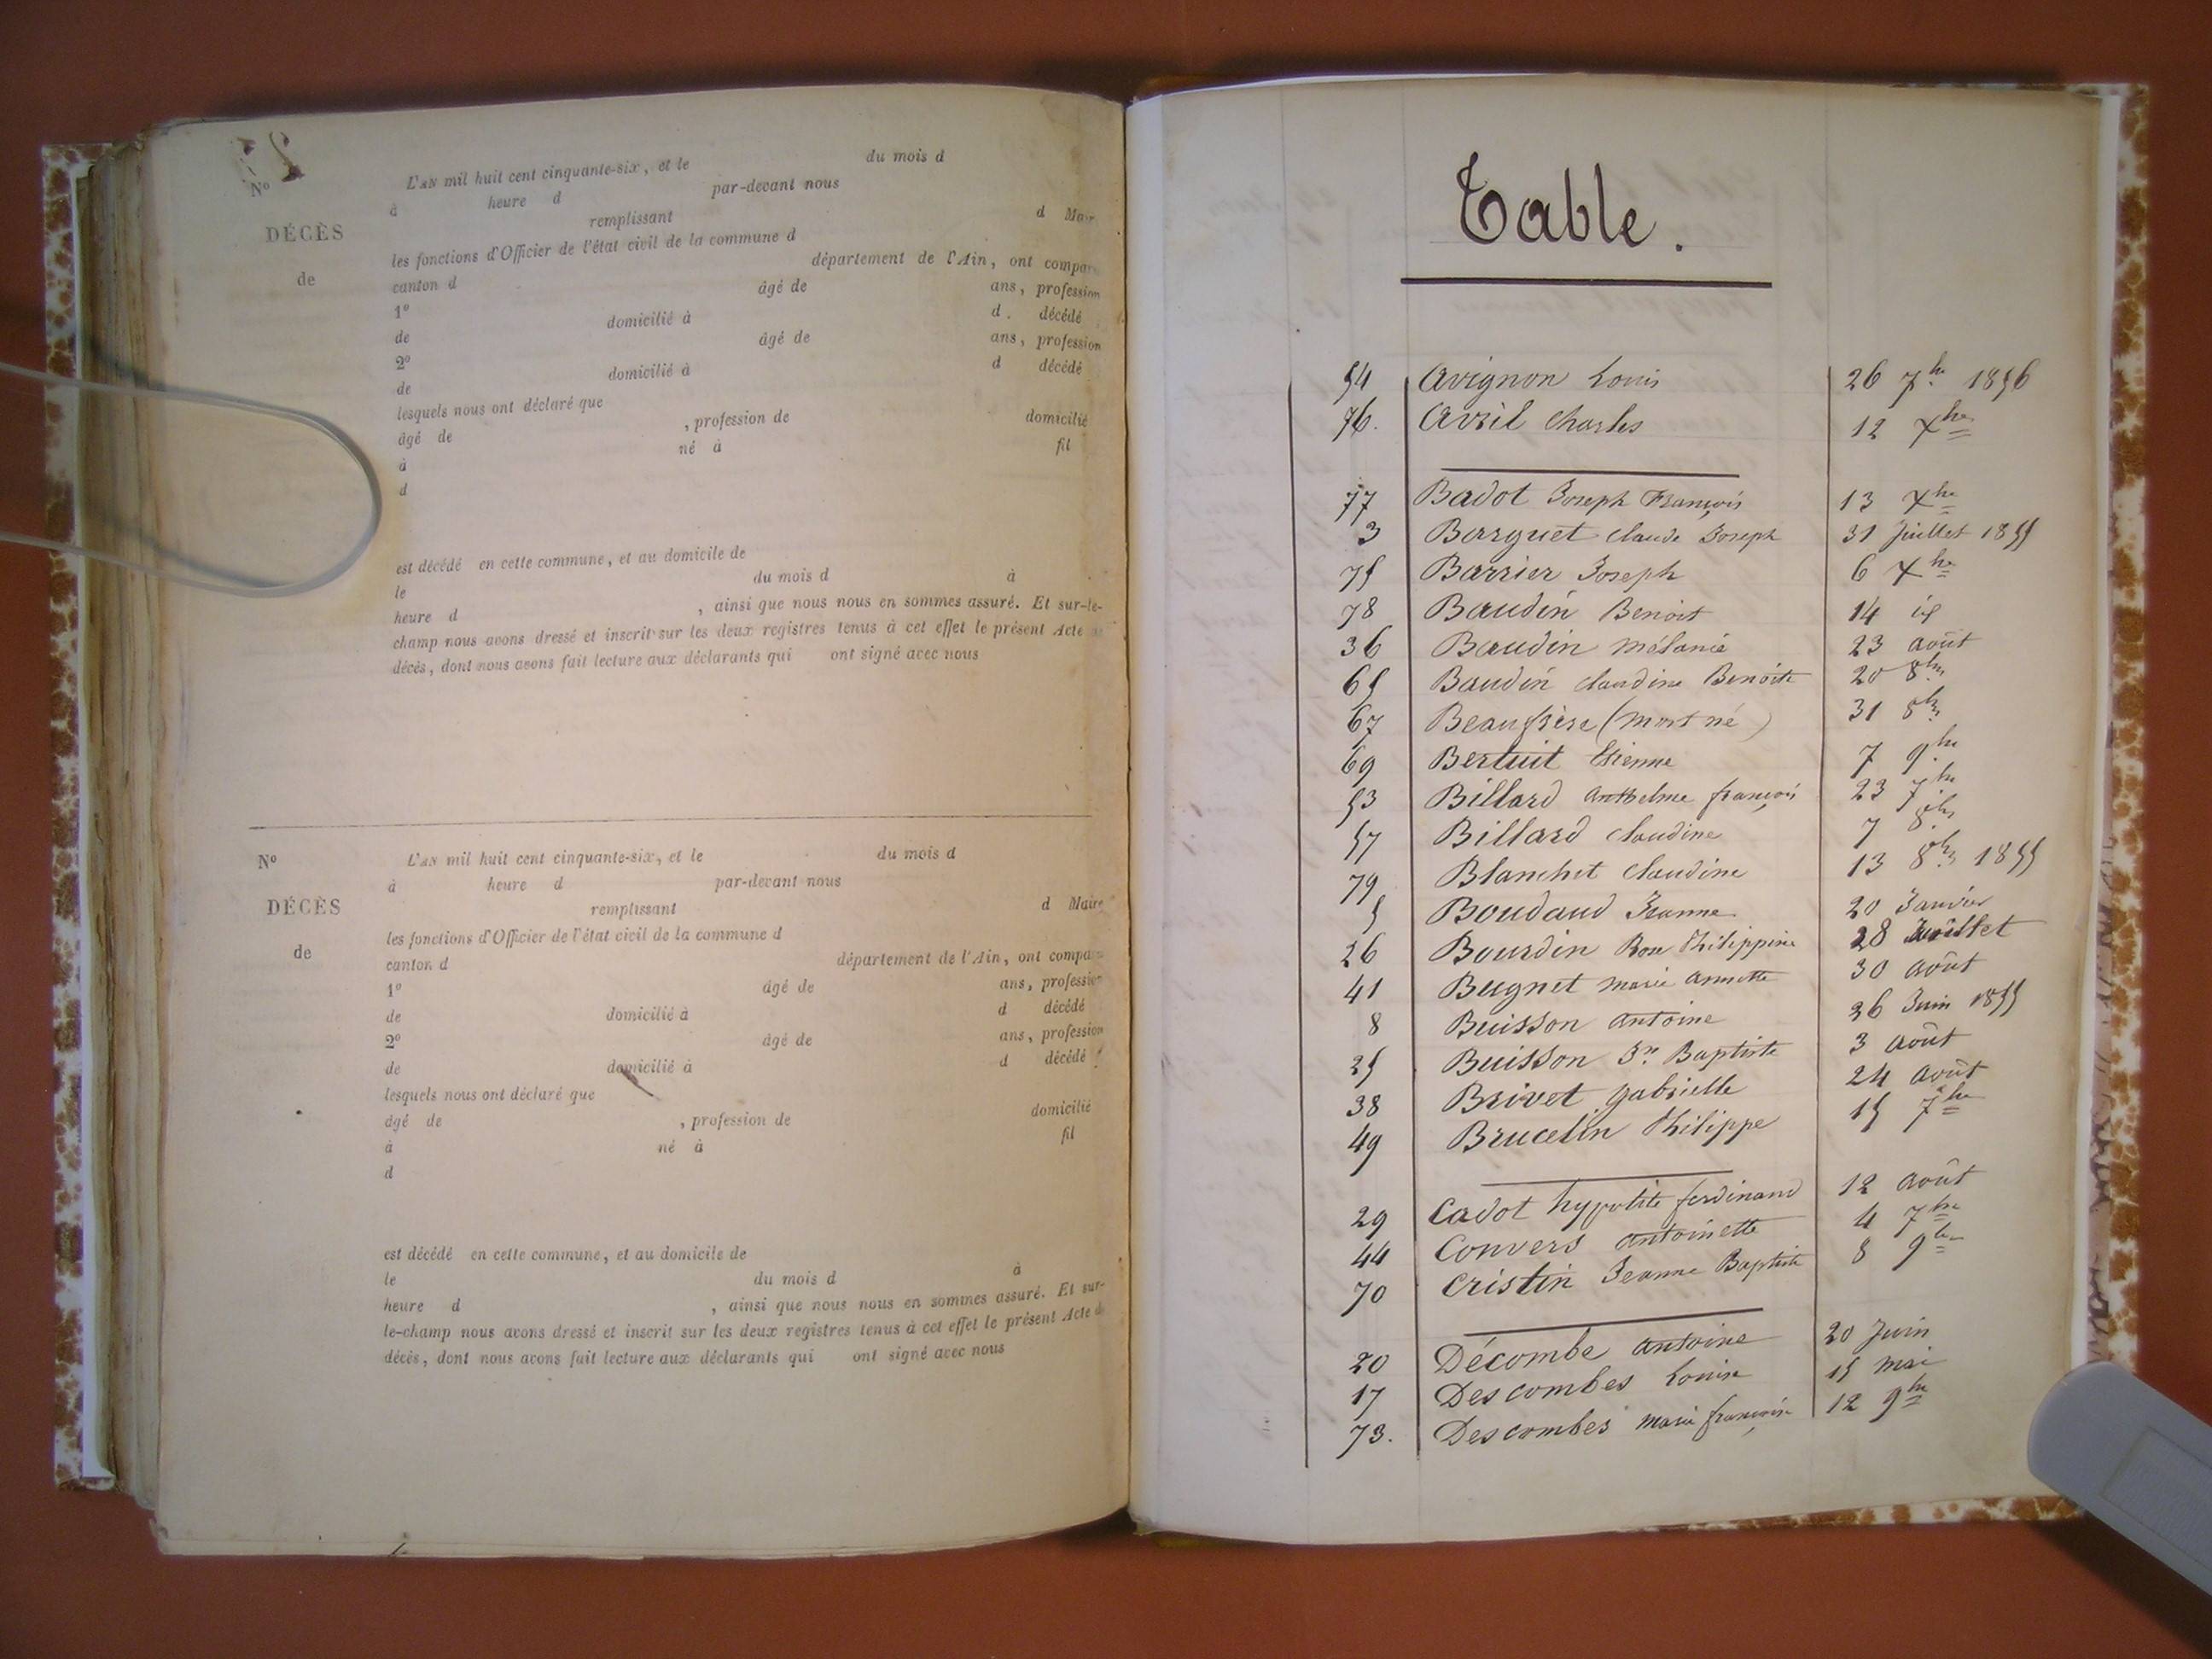 N°
L'AN mil huit cent cinquante-six, et le du mois d
à heure d par-devant nous
DÉCÈS
remplissant d Mair
les fonctions d'Officier de l'état civil de la commune d
de
canton d département de l'Ain, ont compar
1° âgé de ans, profession
de domicilié à d décédé
2° âgé de ans, profession
de domicilié à d décédé
lesquels nous ont déclaré que
âgé de , profession de domicilié
à né à fil
d
est décédé en cette commune, et au domicile de
le du mois d à
heure d , ainsi que nous nous en sommes assuré. Et sur-le-
champ nous avons dressé et inscrit sur les deux registres tenus à cet effet le présent Acte
décès, dont nous avons fait lecture aux déclarants qui ont signé avec nous
N°
L'AN mil huit cent cinquante-six, et le du mois d
à heure d par-devant nous
DÉCÈS
remplissant d Maire
les fonctions d'Officier de l'état civil de la commune d
de
canton d département de l'Ain, ont compa
1° âgé de ans, profession
de domicilié à d décédé
2° âgé de ans, profession
de domicilié à d décédé
lesquels nous ont déclaré que
âgé de , profession de domicilié
à né à fil
d
est décédé en cette commune, et au domicile de
le du mois d à
heure d , ainsi que nous nous en sommes assuré. Et sur-
le-champ nous avons dressé et inscrit sur les deux registres tenus à cet effet le présent Acte d
décès, dont nous avons fait lecture aux déclarants qui ont signé avec nous
Table.
54 Avignon Louis 26 7bre 1856
76. Avril Charles 12 Xbre
77 Badot Joseph François 13 Xbre
3 Barquet Claude Joseph 31 Juillet 1855
75 Barrier Joseph 6 Xbre
78 Baudin Benoit 14 id
36 Baudin Mélanie 23 août
65 Baudin Claudine Benoite 20 8bre
67 Beaufrère (mort né) 31 8bre
69 Bertuit Etienne 7 9bre
53 Billard Anthelme françois 23 7bre
57 Billard Claudine 7 8bre
79 Blanchet Claudine 13 8bre 1855
5 Boudaud Jeanne 20 Janvier
26 Bourdin Rose Philippine 28 Juillet
41 Bugnet marie annette 30 août
8 Buisson antoine 26 Juin 1855
25 Buisson Jn Baptiste 3 août
38 Brivet gabrielle 24 août
49 Brucelin Philippe 15 7bre
29 Cadot hypolite ferdinand 12 août
44 Convers antoinette 4 7bre
70 Cristin Jeanne Baptiste 8 9bre
20 Décombe antoine 20 Juin
17 Descombes Louise 15 mai
73. Descombes marie françoise 12 9bre